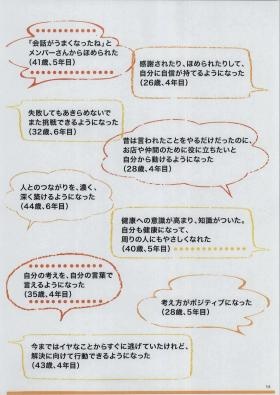 「会話がうまくなったね」と
メンバーさんからほめられた
(41歳、5年目)
感謝されたり、ほめられたりして、
自分に自信が持てるようになった
(26歳、4年目)
失敗してもあきらめないで
また挑戦できるようになった
(32歳、6年目)
昔は言われたことをやるだけだったのに、
お店や仲間のために役に立ちたいと
自分から動けるようになった
(28歳、4年目)
人とのつながりを、濃く、
深く築けるようになった
(44歳、6年目)
健康への意識が高まり、知識がついた。
自分も健康になって、
周りの人にもやさしくなれた
(40歳、5年目)
自分の考えを、自分の言葉で
言えるようになった
(35歳、4年目)
考え方がポジティブになった
(28歳、5年目)
今まではイヤなことからすぐに逃げていたけれど、
解決に向けて行動できるようになった
(43歳、4年目)